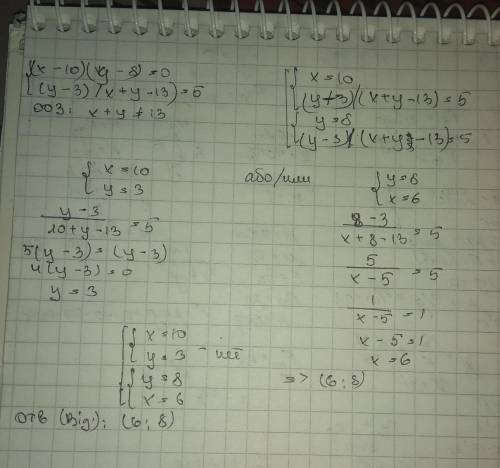 (x-10)(y-8)=0
(y-3)/(x+y-13)=5
ООЗ: x+y≠13
x=10
(y-3)/(x+y-13)=5
y=8
(y-3)/(x+y-13)=5
x=10
y=3
y-3
10+y-13 =5
5(y-3)=(y-3)
4(y-3)=0
y=3
або/или
y=8
x=6
8-3
x+8-13 =5
5
x-5 =5
1
x-5 =1
x-5=1
x=6
x=10
y=3
y=8
x=6
=> (6;8)
Отв (Від): (6;8)